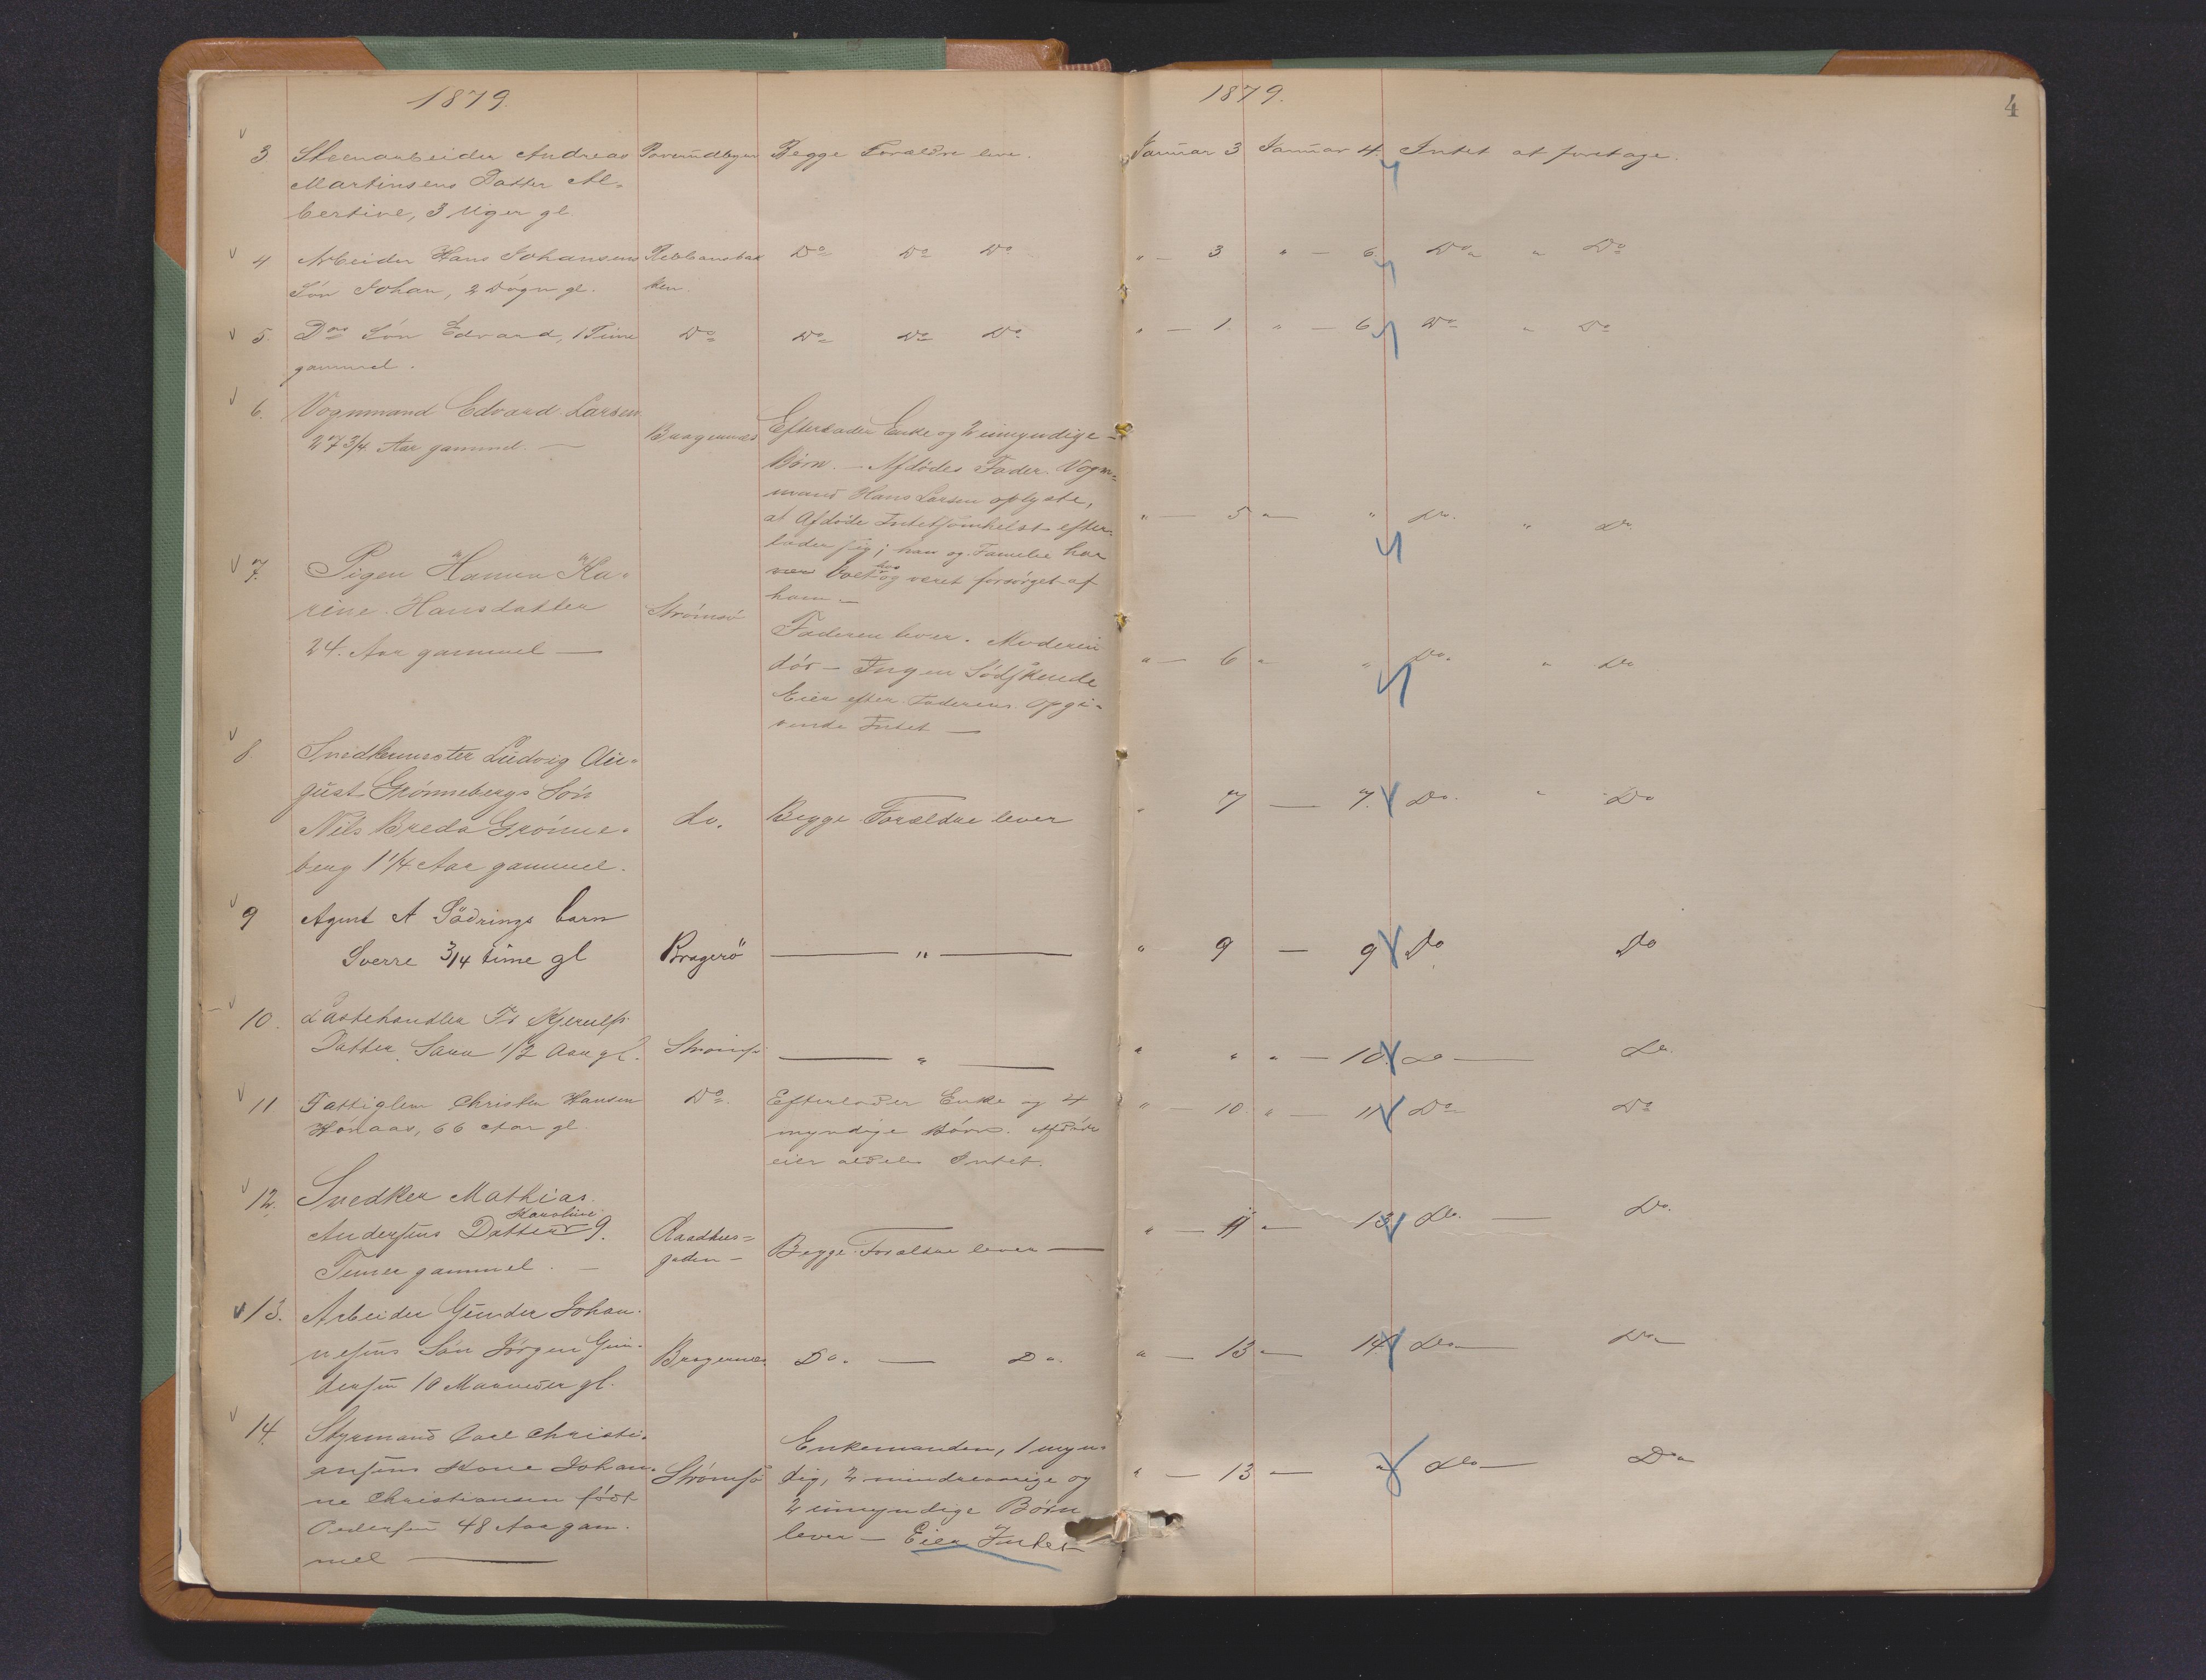 1879.
3 Steenarbeider Andreas
Martinsens Datter Al-
bertine, 3 Uger gl.
Begge Forældre leve.
4 Arbeider Hans Johansens
Søn Johan, 2 Døgn gl.
Do Do Do
5. Dos Søn Edvard, 1 Time
gammel.
Do
Do Do Do
6. Vognmand Edvard Larsen
27 3/4 Aar gammel. —
Bragernæs
Efterlader Enke og 2 umyndige
Børn. — Afdødes Fader. Vogn-
mand Hans Larsen oplyste,
at Afdøde Intetsomhelst efter-
lader sig; han og Familie har
boet hos og været forsørget af
ham —
7. Pigen Hanna Ka-
rine Hansdatter
24. Aar gammel —
Strømsø
Faderen lever. Moderen
død — Ingen Sødskende
Eier efter Faderens Opgi-
vende Intet —
8. Snedkermester Ludvig Au-
gust Grønnebergs Søn
Nils Breda Grønne-
berg 1 1/4 Aar gammel.
do.
Begge Forældre lever
9 Agent A Södrings barn
Sverre 3/4 time gl
Bragerö
— " —
10. Lastehandler Fr Kjerulfs
Datter Sara 1/2 Aar gl.
Strømsø
— " —
11 Fattiglem Christen Hansen
Hønaas, 66 Aar gl
Do.
Efterlader Enke og 4
myndige Børn. Afdøde
eier aldeles Intet.
12. Snedker Mathias
Andersens Datter Karoline 9.
Timer gammel. —
Raadhus-
gaden —
Begge Forældre lever —
13. Arbeider Gunder Johan-
nesens Søn Jørgen Gun-
dersen 10 Maaneder gl.
Bragernæs
Do. — Do.
14. Styrmand Carl Christi-
ansens Kone Johan-
ne Christiansen født
Pedersen 48 Aar gam-
mel —
Strømsø
Enkemanden, 1 myn-
dig, 2 mindreaarige og
2 umyndige Børn
lever — Eier Intet
1879.
4
Januar 3 Januar 4. Intet at foretage.
" — 3 " — 6 Do " Do
" — 1 " — 6 Do " Do
" — 5 " — " Do. " Do.
" — 6 " " Do. " Do
" 7 — 7. Do. " Do
" 9 — 9 Do Do
" " " — 10 Do — Do.
" — 10 " — 11 Do Do
" — 11 " — 13 Do. — Do.
" — 13 " — 14 Do — Do
" — 13 " — " Do — Do